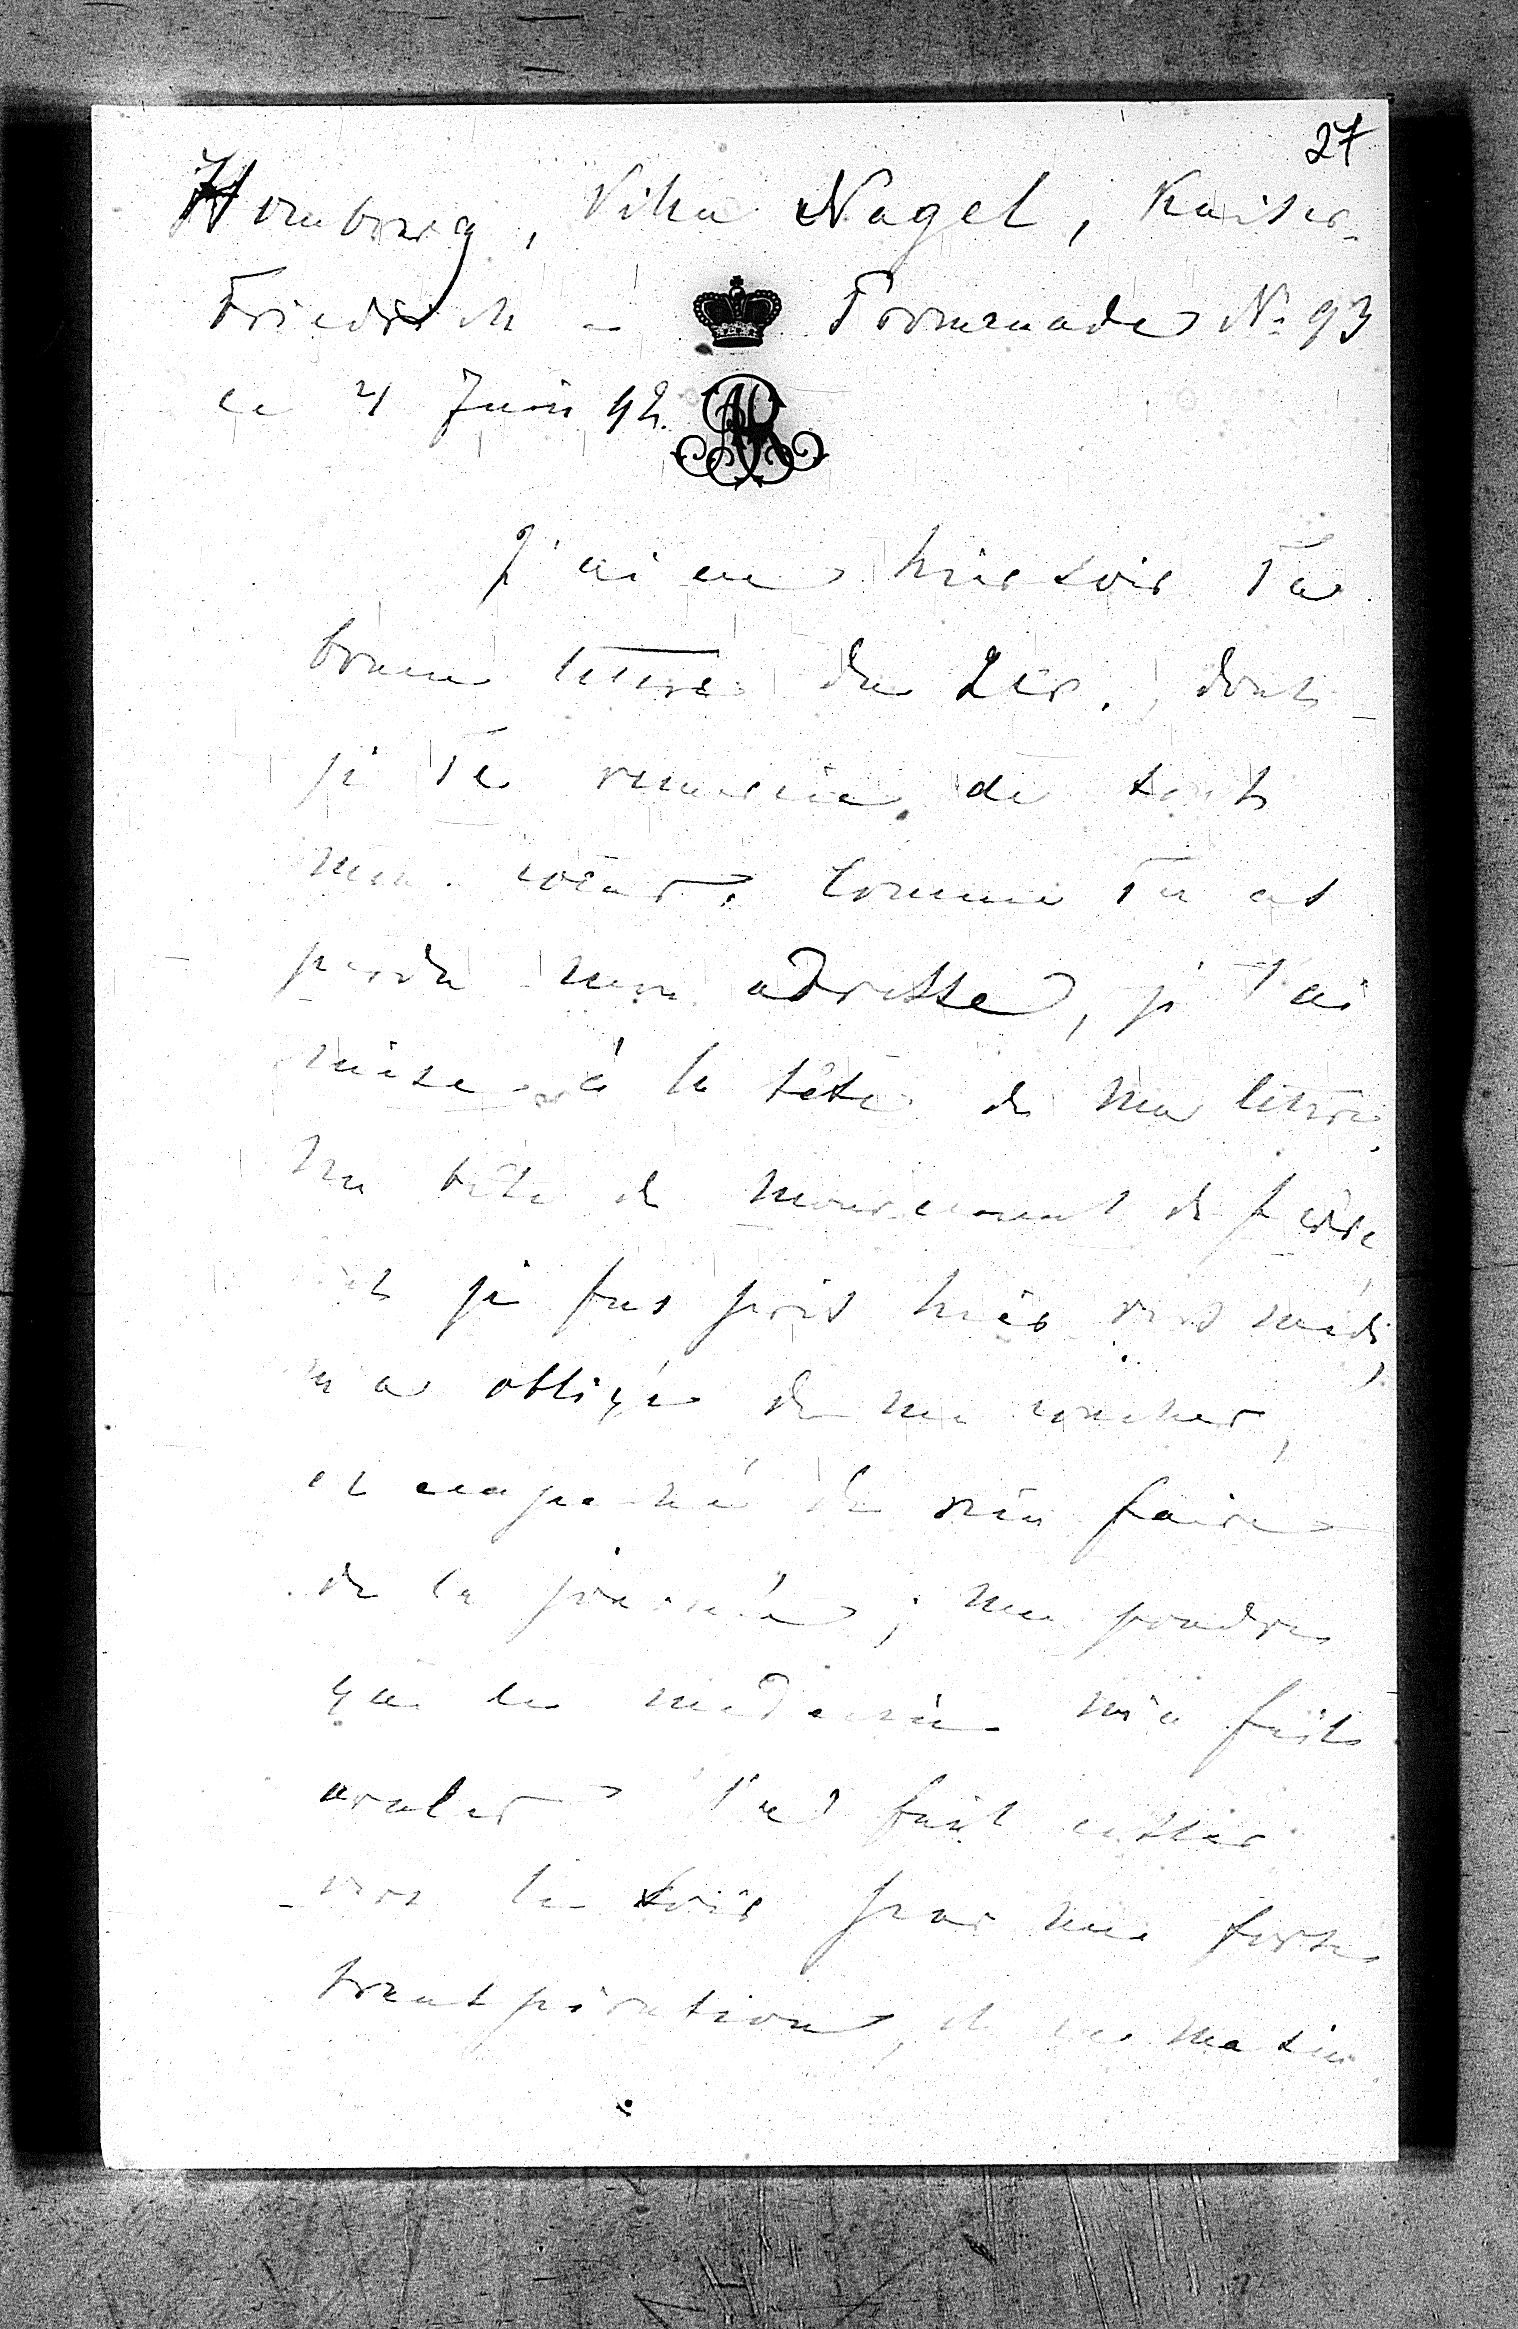 27
Hombourg, Villa Nagel, Kaiser-
Friedrich - Promenade № 93
ce 4 Juin 92.
J'ai eu hier soir Ta
bonne lettre du 2 er., dont
je Te remercie de tout
mon coeur. Comme Tu as
perdu mon adresse, je l'ai
mise à la tête de ma lettre.
de mouvement de fièvre
je fus pris hier vers midi,
m'a obligé de me coucher,
et empêché de rien faire
de la journée; une poudre
que le médecin m'a fait
avaler l'a fait cesser
vers le soir par une forte
transpiration, et ce matin